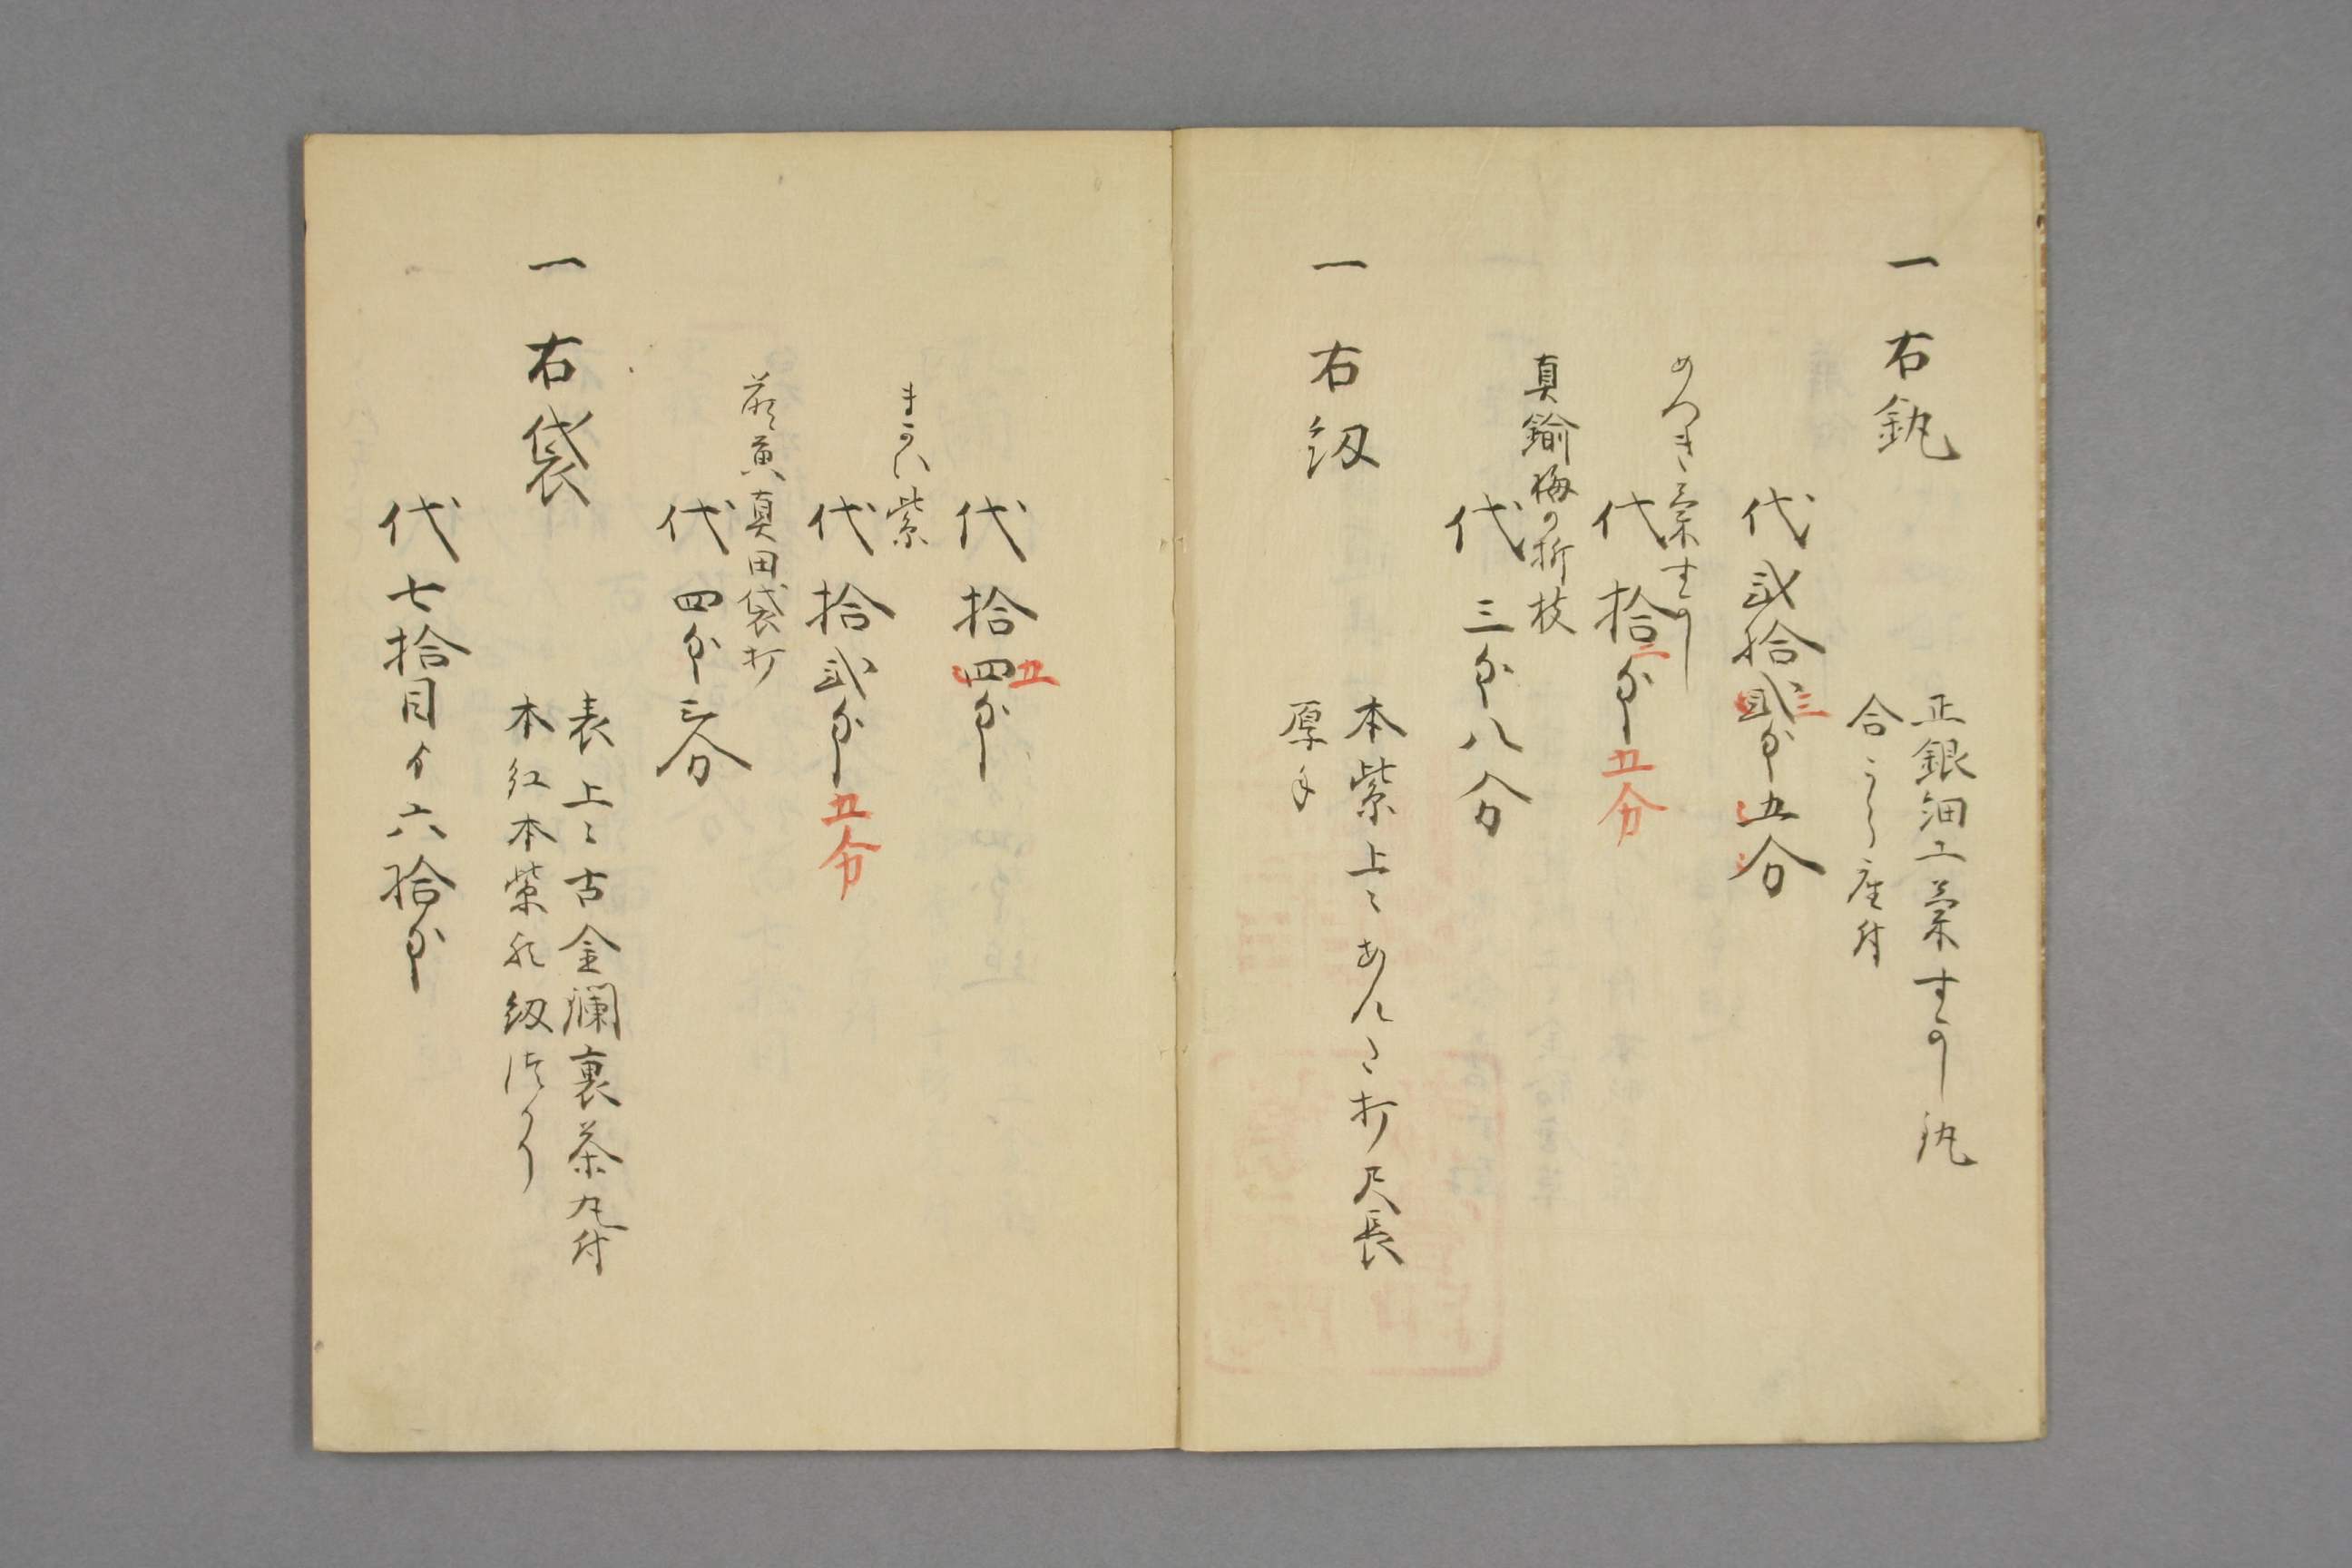 一 右釻
正銀細工菊すかし釻
合ころ座付
代 弐拾弐匁五分
三
めつき菊すかし
代 拾匁
三
五分
真鍮梅の折枝
代 三匁八分
一 右紐
本紫上ミあんこ打尺長
厚手
代 拾四匁
五
まかい紫
代 拾弐匁
五分
萌黄真田袋打
代 四匁三分
一 右袋
表上ミ古金瀾裏茶丸付
本紅本紫ノ紐付
代 七拾目ゟ六拾匁